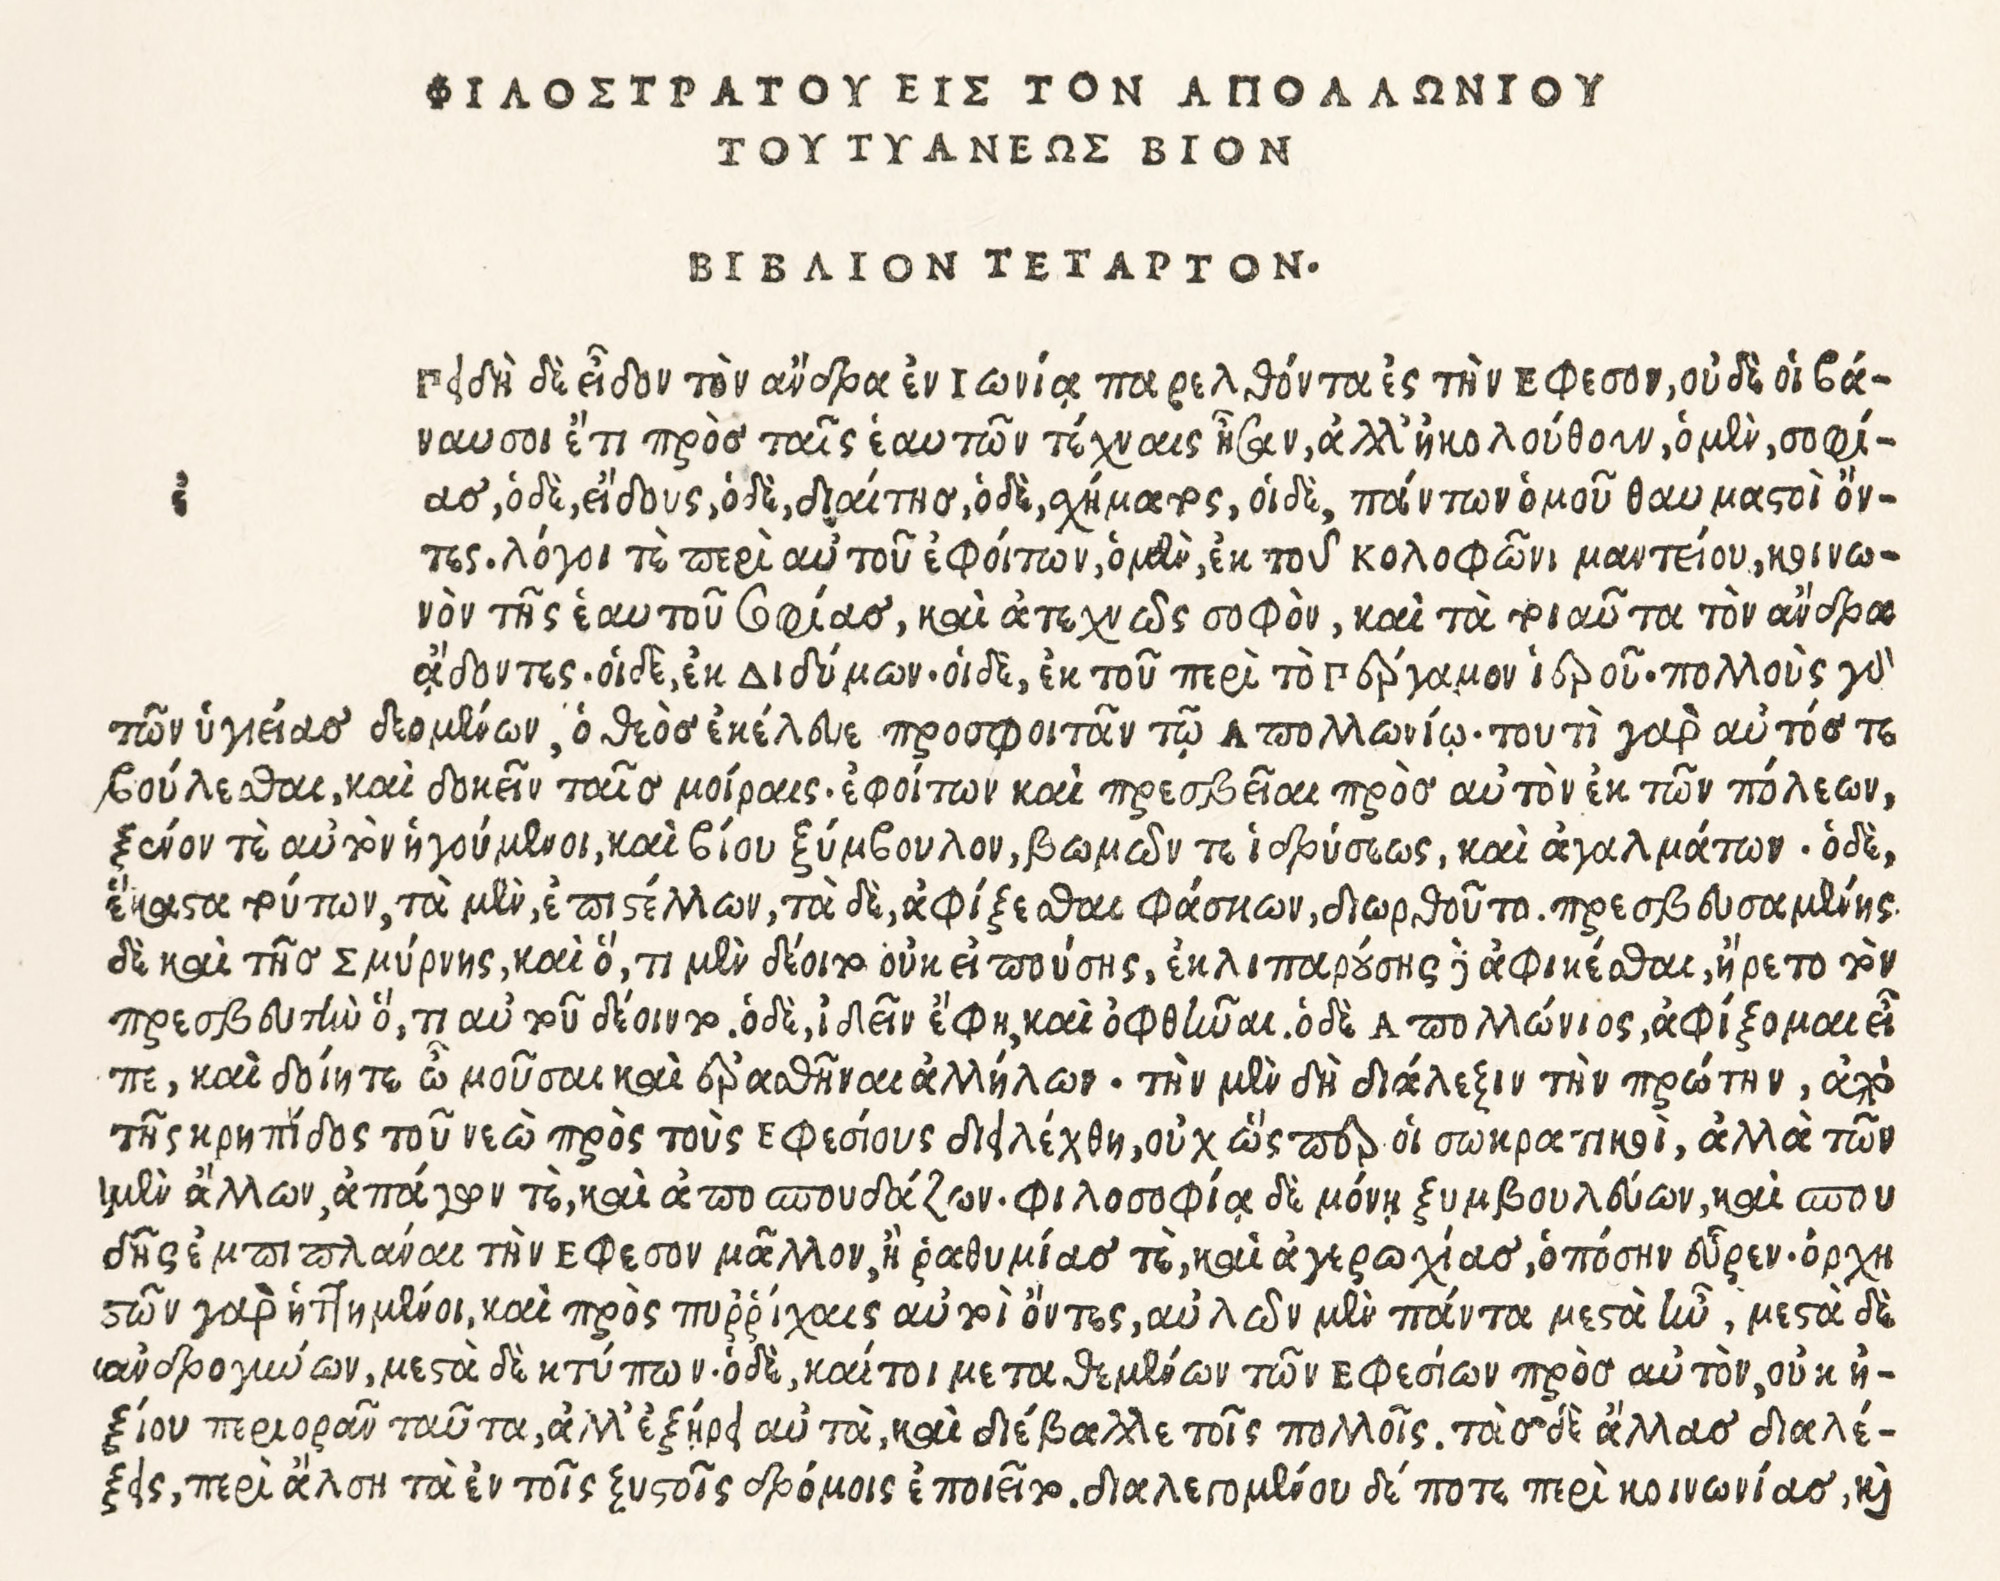 ΦΙΛΟΣΤΡΑΤΟΥ ΕΙΣ ΤΟΝ ΑΠΟΛΛΩΝΙΟΥ
ΤΟΥ ΤΥΑΝΕΩΣ ΒΙΟΝ
ΒΙΒΛΙΟΝ ΤΕΤΑΡΤΟΝ.
Πειδὴ δὲ εἶδον τὸν ἄνδρα ἐν Ιωνίᾳ παρελθόντα ἐς τὴν Εφεσον, οὐδὲ οἱ βά-
ναυσοι ἔτι πρὸσ ταῖς ἑαυτῶν τέχναις ἦσαν, ἀλλ' ἠκολούθουν, ὁ μὲν, σοφί-
ἐ
ασ, ὁ δὲ, εἴδους, ὁ δὲ, διαίτησ, ὁ δὲ, χήματος, οἱ δὲ, πάντων ὁμοῦ θαυμαστοὶ ὄν-
τες. λόγοι τὲ περὶ αὐτοῦ ἐφοίτων, ὁ μὲν, ἐκ τοῦ Κολοφῶνι μαντείου, κοινω-
νὸν τῆς ἑαυτοῦ σοφίασ, καὶ ἀτεχνῶς σοφὸν, καὶ τὰ τοιαῦτα τὸν ἄνδρα
ᾄδοντες. οἱ δὲ, ἐκ Διδύμων. οἱ δὲ, ἐκ τοῦ περὶ τὸ Πέργαμον ἱεροῦ. πολλοὺς γὰρ
τῶν ὑγιείασ δεομένων, ὁ θεὸσ ἐκέλευε προσφοιτᾶν τῷ Απολλωνίῳ. τουτὶ γὰρ αὐτόσ τε
βούλεσθαι, καὶ δοκεῖν ταῖσ μοίραις. ἐφοίτων καὶ πρεσβεῖαι πρὸσ αὐτὸν ἐκ τῶν πόλεων,
ξένον τὲ αὐτὸν ἡγούμενοι, καὶ βίου ξύμβουλον, βωμῶν τε ἱδρύσεως, καὶ ἀγαλμάτων . ὁ δὲ,
ἕκαστα τούτων, τὰ μὲν, ἐπιστέλλων, τὰ δὲ, ἀφίξεσθαι φάσκων, διωρθοῦτο. πρεσβευσαμένης
δὲ καὶ τῆσ Σμύρνης, καὶ ὅ, τι μὲν δέοιτο οὐκ εἰπούσης, ἐκλιπαρούσης δὲ ἀφικέσθαι, ἤρετο τὸν
πρεσβευτὴν ὅ, τι αὐτοῦ δέοιντο. ὁ δὲ, ἰδεῖν ἔφη, καὶ ὀφθῆναι. ὁ δὲ Απολλώνιος, ἀφίξομαι εἶ
πε, καὶ δοίητε ὦ μοῦσαι καὶ ἐρασθῆναι ἀλλήλων . τὴν μὲν δὴ διάλεξιν τὴν πρώτην, ἀπὸ
τῆς κρηπίδος τοῦ νεὼ πρὸς τοὺς Εφεσίους διελέχθη, οὐχ ὥσπερ οἱ σωκρατικοὶ, ἀλλὰ τῶν
μὲν ἄλλων, ἀπάγων τὲ, καὶ ἀποσπουδάζων. φιλοσοφίᾳ δὲ μόνῃ ξυμβουλεύων, καὶ σπου
δῆς ἐμπιπλάναι τὴν Εφεσον μᾶλλον, ἢ ῥαθυμίασ τὲ, καὶ ἀγερωχίασ, ὁπόσην εὗρεν. ὀρχη
στῶν γὰρ ἡττημένοι, καὶ πρὸς πυῤῥίχαις αὐτοὶ ὄντες, αὐλῶν μὲν πάντα μεστὰ ἦν, μεστὰ δὲ
ἀνδρογύνων, μεστὰ δὲ κτύπων. ὁ δὲ, καίτοι μεταθεμένων τῶν Εφεσίων πρὸσ αὐτὸν, οὐκ ἠ-
ξίου περιορᾶν ταῦτα, ἀλλ' ἐξῄρει αὐτὰ, καὶ διέβαλλε τοῖς πολλοῖς. τὰσ δὲ ἄλλασ διαλέ-
ξεις, περὶ ἄλση τὰ ἐν τοῖς ξυστοῖς δρόμοις ἐποιεῖτο. διαλεγομένου δέ ποτε περὶ κοινωνίασ, καὶ